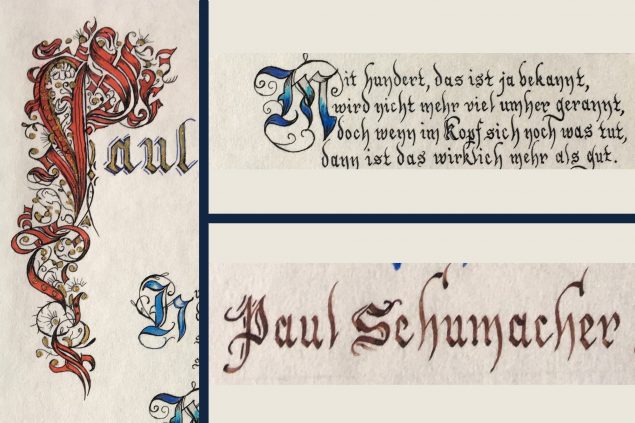 Paul
Mit hundert, das ist ja bekannt,
wird nicht mehr viel umher gerannt,
doch wenn im Kopf sich noch was tut,
dann ist das wirklich mehr als gut.
Paul Schumacher